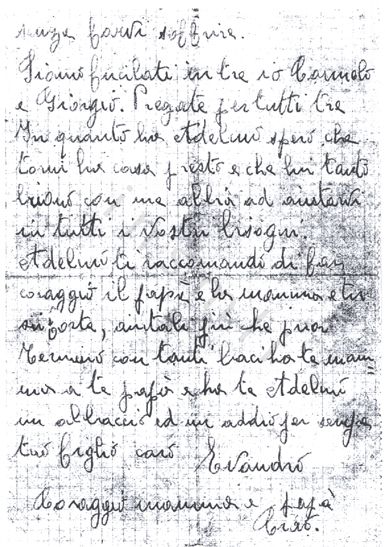 senza farvi soffrire.
Siamo fucilati in tre io Carmelo
e Giorgio. Pregate per tutti tre
In quanto ha Adelmo spero che
torni ha casa presto e che lui tanto
buono con me abbia ad aiutarvi
in tutti i vostri bisogni
Adelmo ti raccomando di far
coraggio il papà e ha mamma e tu
sii forte, aiutali più che puoi
Termino con tanti baci ha te mam
ma a te papà e ha te Adelmo
un abbraccio ed un addio per sempre
tuo figlio caro Evandro
Coraggio mamma e papà
Ciao.